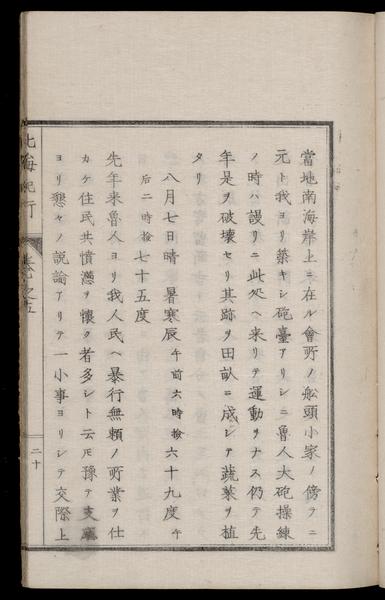 當地南海岸上ニ在ル會所ノ舩頭小家ノ傍テニ
元ト我ヨリ築キシ砲臺アリシニ魯人大砲操練
ノ時ハ謾リニ此処ヘ来リテ運動ヲナス仍テ先
年是ヲ破壊セリ其跡ヲ田畝ニ成シテ蔬菜ヲ植
タリ
八月七日晴 暑寒辰午前六時檢六十九度午
后二時檢七十五度
先年来魯人ヨリ我人民ヘ暴行無頼ノ所業ヲ仕
カケ住民共憤懣ヲ懐ク者多シト云モ豫テ支廳
ヨリ懇々ノ説諭アリテ一小事ヨリシテ交際上
北海紀行
巻之五
二十